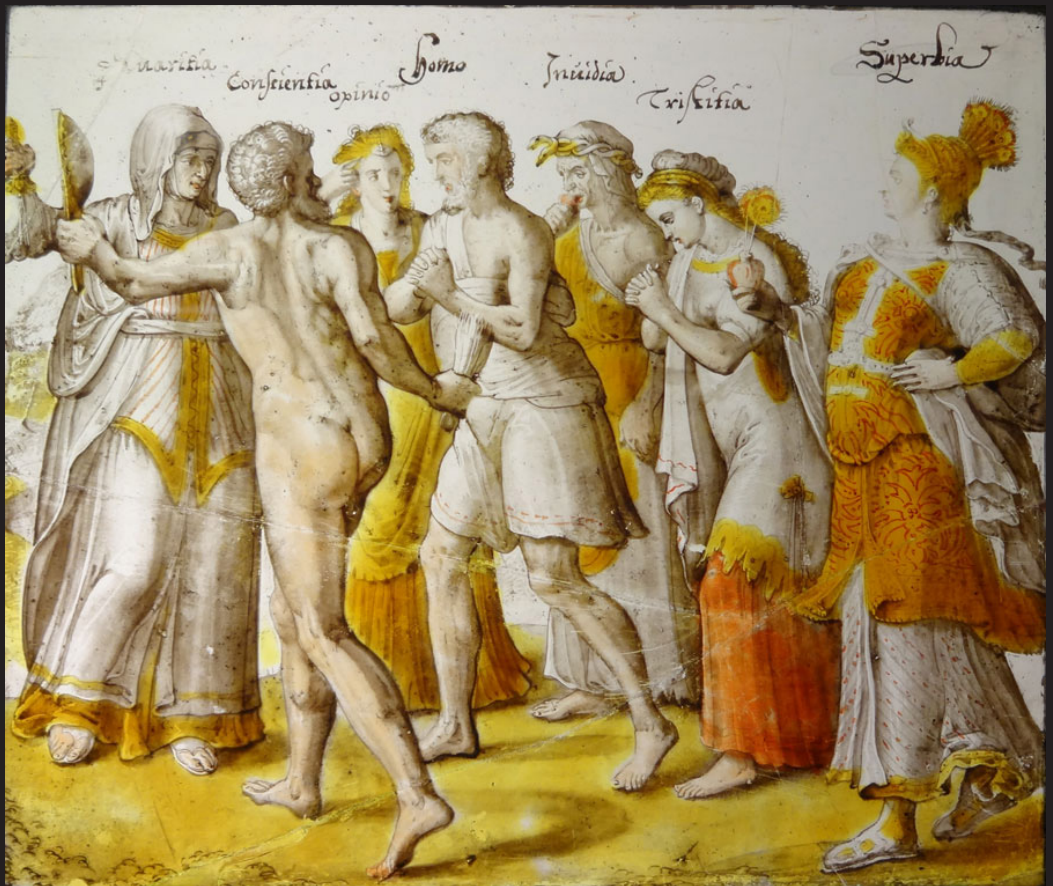 Auaritia
Conscientia
opinio
Homo
Inuidia
Tristitia
Superbia